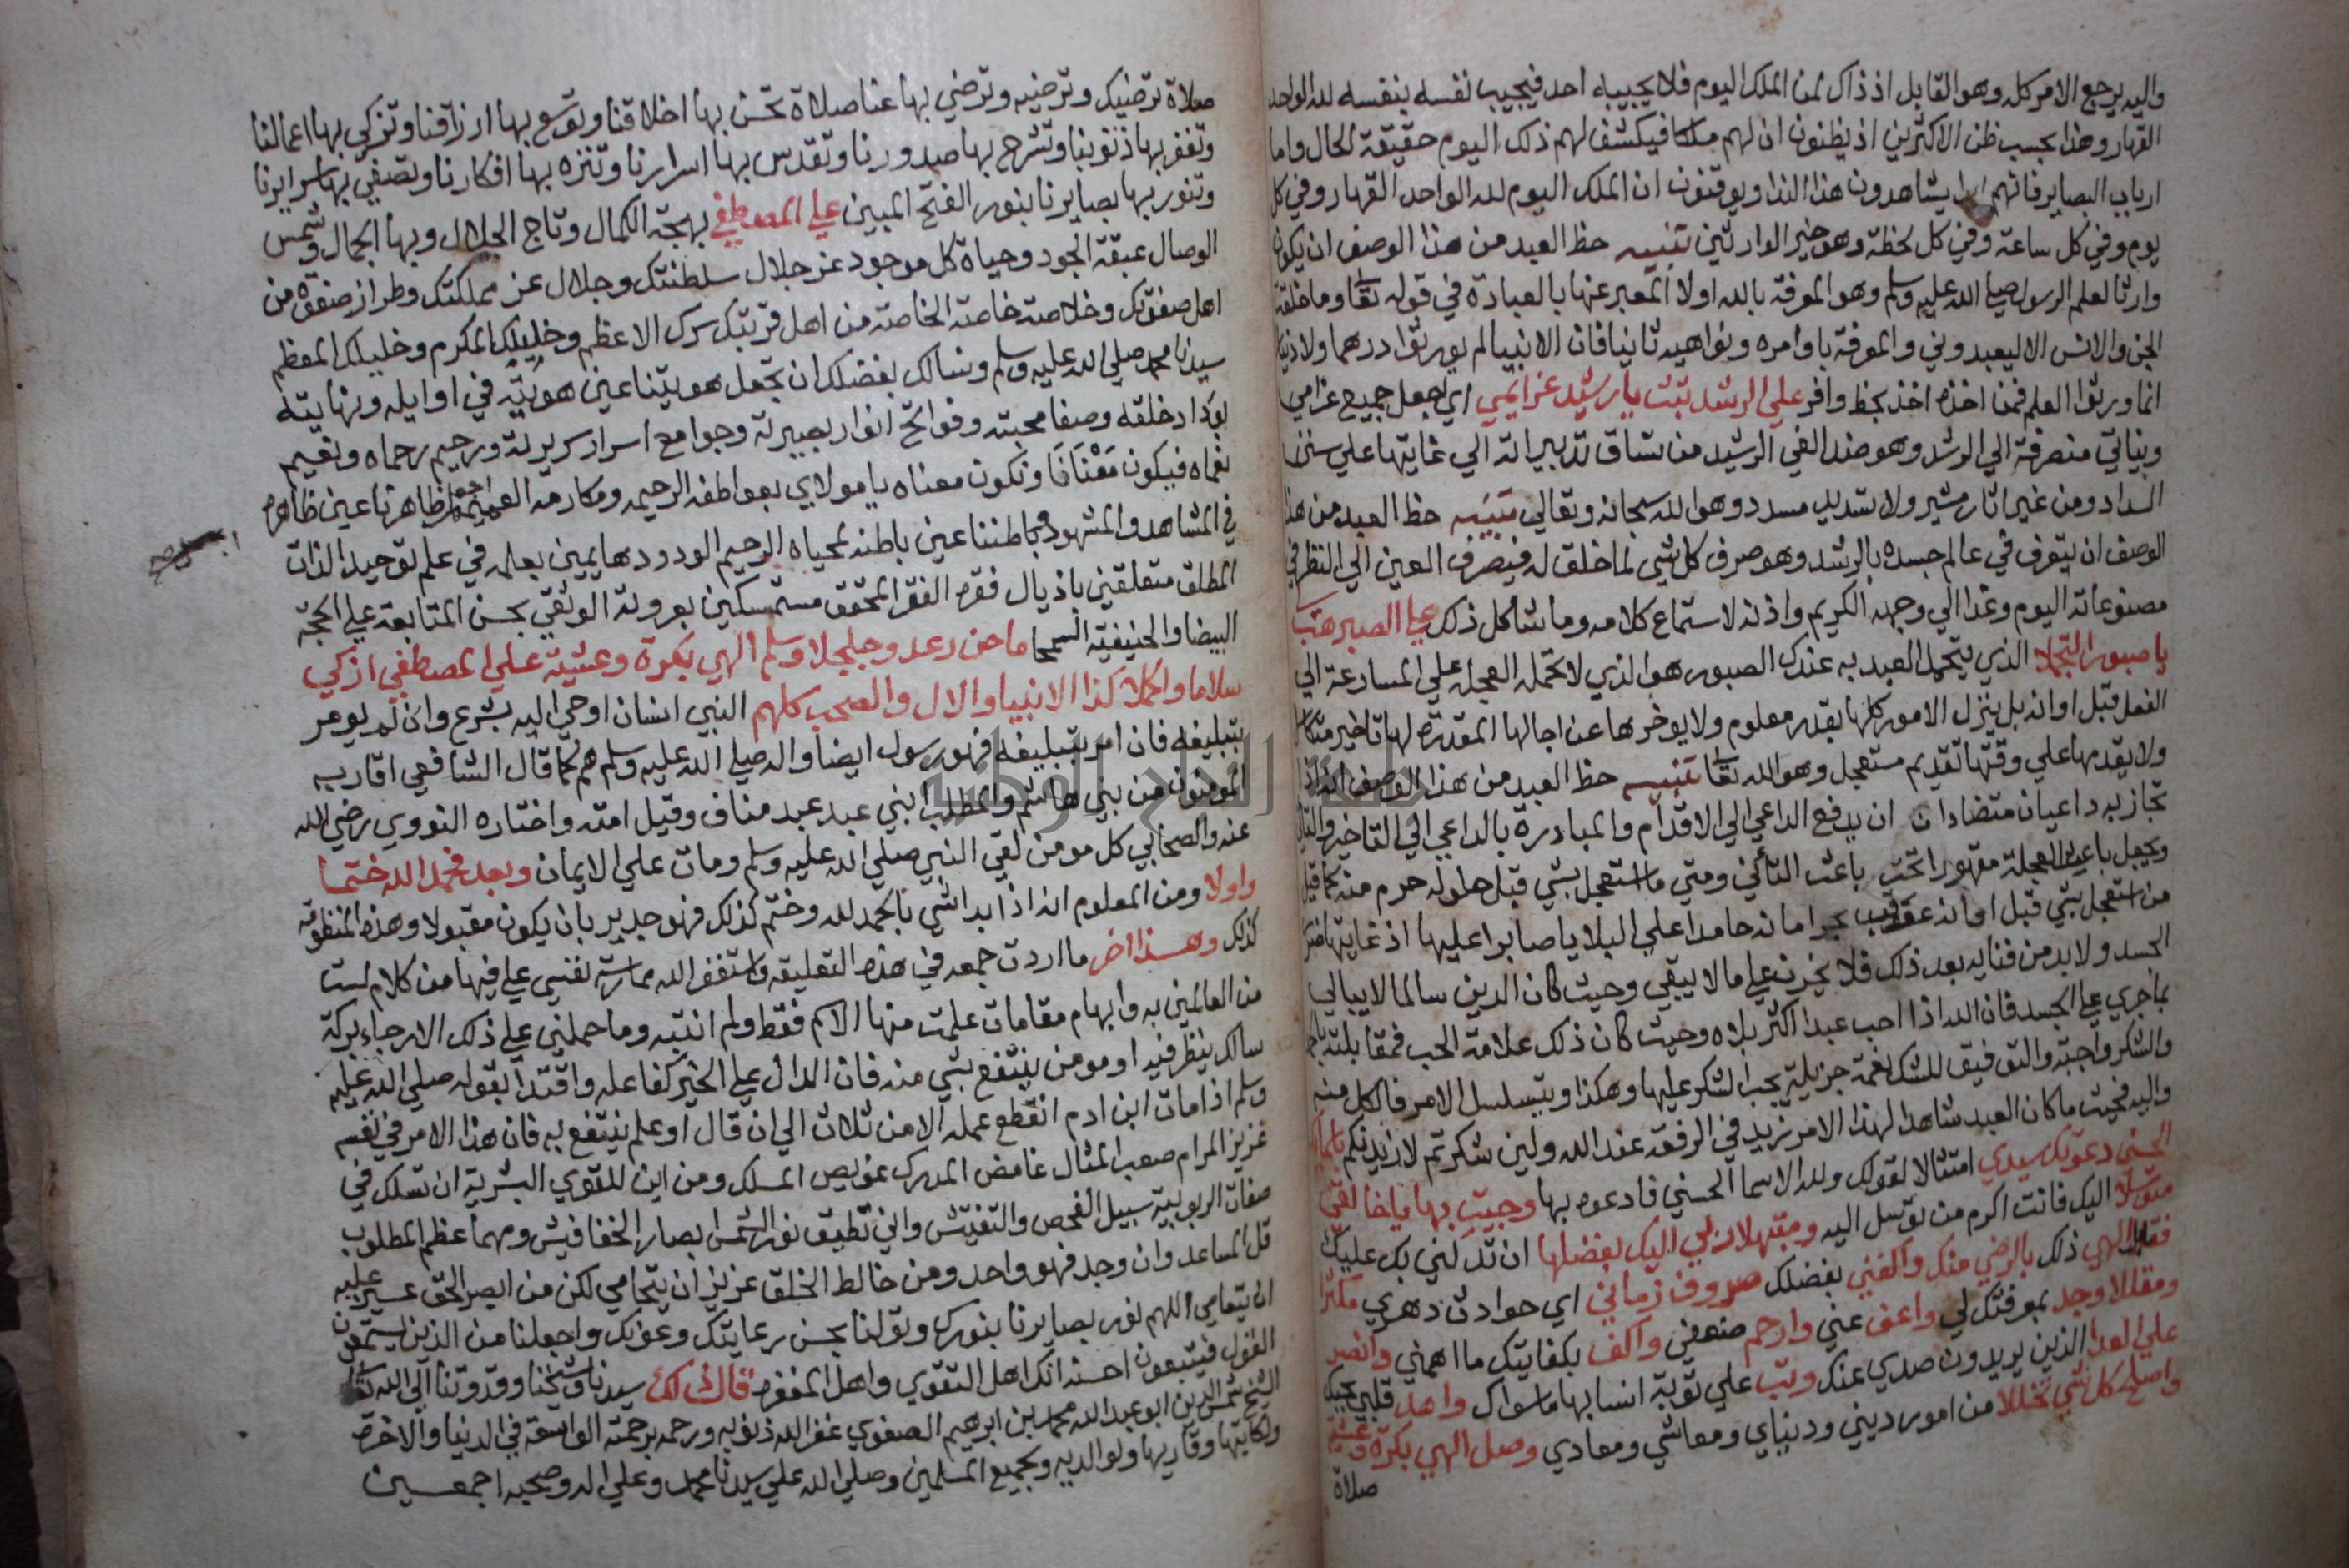 واليه يرجع الامر كله وهو القايل اذ ذاك لمن الملك اليوم فلا يجيبه احد فيجيب نفسه بنفسه لله الواحد
القهار وهذا بحسب ظن الاكثرين اذ يظنون ان لهم ملكا فيكشف لهم ذلك اليوم حقيقة الحال واما
ارباب البصاير فانهم ابدا يشاهدون هذا الندا ويوقنون ان الملك اليوم لله الواحد القهار وفي كل
يوم وفي كل ساعة وفي كل لحظة وهو خير الوارثين تنبيه حظ العبد من هذا الوصف ان يكون
وارثا لعلم الرسول صلي الله عليه وسلم وهو المعرفة بالله اولا المعبر عنها بالعبادة في قوله تعا وما خلقت
الجن والانس الا ليعبدوني والمعرفة باوامره ونواهيه ثانيا فان الانبيا لم يورثوا درهما ولا دينارا
انما ورثوا العلم فمن اخذه اخذ بحظ وافر علي الرشد ثبت يا رشيد عزايمي اي اجعل جميع عزايمي
ونياتي منصرفة الي الرشد وهو ضد الغي الرشيد من تساق تدبيراته الي غايتها علي سنن
السداد ومن غير اشارة مشير ولا تسديد مسدد وهو الله سبحانه وتعالي تنبيه حظ العبد من هذا
الوصف ان يتصرف في عالم جسده بالرشد وهو صرف كل شي لما خلق له فيصرف العين الي النظر في
مصنوعاته اليوم وغدا الي وجهه الكريم واذنه لاستماع كلامه وما شاكل ذلك علي الصبر هب
يا صبور التجملا الذي يتجمل العبد به عندك الصبور هو الذي لا تحمله العجلة علي المسارعة الي
الفعل قبل اوانه بل ينزل الامور كلها بقدر معلوم ولا يوخرها عن اجالها المقدرة لها تاخير متكاسل
ولا يقدمها علي وقتها تقديم مستعجل وهو الله تعا تنبيه حظ العبد من هذا الوصف انه اذا
تجاذبه داعيان متضادان ان يدفع الداعي الي الاقدام والمبادرة بالداعي الي التاخير والتاني
ويجعل باعث العجلة مقهورا تحت باعث التأني ومتي ما استعجل بشي قبل حلوله حرم منه كما قيل
من استعجل بشي قبل اوانه عوقب بحرمانه حامدا علي البلايا صابرا عليها اذ غايتها فناء
الجسد ولا بد من فنايه بعد ذلك فلا يحزن علي ما لا يبقي وحيث كان الدين سالما لا يبالي
بما جري علي الجسد فان الله اذا احب عبدا اكثر بلاه وحيث كان ذلك علامة الحب فمقابلته بالحمد
والشكر واجبة والتوفيق للشكر نعمة جزيلة يجب الشكر عليها وهكذا ويتسلسل الامر فالكل منه
واليه فحيث ما كان العبد شاهدا لهذا الامر نزيد في الرفعة عند الله ولين شكرتم لازيدنكم باسمايك
الحسني دعوتك سيدي امتثالا لقولك ولله الاسما الحسني فادعوه بها وجيت بها يا خالقي
متوسلا اليك فانت اكرم من توسل اليه ومبتهلا ربي اليك بفضلها ان تدلني بك عليك
فقابل الهي ذلك بالرضي منك واكفني بفضلك صروف زماني اي حوادث دهري مكثرا
ومقللا وجد بمعرفتك لي واعف عني وارحم ضعفي واكف بكفايتك ما اهمني وانصر
علي العدا الذين يريدون صدي عنك وتب علي توبة انسا بها ما سواك واهد قلبي بحبك
واصلح كل شي تخللا من امور ديني ودنياي ومعاشي ومعادي وصل الهي بكرة وعشية
صلاة
صلاة ترضيك وترضيه وترضي بها عنا صلاة تحسن بها اخلاقنا وتوسع بها ارزاقنا وتزكي بها اعمالنا
وتغفر بها ذنوبنا وتشرح بها صدورنا وتقدس بها اسرارنا وتنزه بها افكارنا وتصفي بها سرايرنا
وتنور بها بصايرنا بنور الفتح المبين علي المصطفي بهجة الكمال وتاج الجلال وبها الجمال وشمس
الوصال عبقة الجود وحياة كل موجود عز جلال سلطنتك وجلال عز مملكتك وطراز صفوة من
اهل صفوتك وخلاصة خاصة الخاصة من اهل قربتك سرك الاعظم وخليلك المكرم وخليلك المعظم
سيدنا محمد صلي الله عليه وسلم ونسالك بفضلك ان تجعل هويتنا عين هويته في اوايله ونهايته
بوداد خلقه وصفا محبته وفواتح انوار بصيرته وجوامع اسرار سريرته ورحيم رحماه ونعيم
نعماه فيكون معنانا ونكون معناه يا مولاي بعواطفه الرحيمه ومكارمه العميمه اجعل ظاهرنا عين ظاهره
في المشاهد والمشهود وباطننا عين باطنه لمحياه الرحيم الودود هايمين بعلمه في علم توحيد الذات
المطلق متعلقين باذيال فقره الفقر المحقق مستمسكين بعروته الوثقي بحسن المتابعة علي الحجة
البيضا والحنيفية السمحا ما حن رعد وجلجلا وسلم الهي بكرة وعشية علي المصطفي ازكي
سلاما واكملا كذا الانبيا والال والصحب كلهم النبي انسان اوحي اليه بشرع وان لم يومر
بتبليغه فان امر بتبليغه فهو رسول ايضا واله صلي الله عليه وسلم هم كما قال الشافعي اقاربه
المومنون من بني هاشم والمطلب ابني عبد عبد مناف وقيل امته واختاره النووي رضي الله
عنه والصحابي كل مومن لقي النبي صلي الله عليه وسلم ومات علي الايمان وبعد فحمد الله ختما
واولا ومن المعلوم انه اذا ابدا شي بالحمد لله وختم كذلك فهو جدير بان يكون مقبولا وهذه المنظومة
كذلك وهذا اخر ما اردت جمعه في هذه التعليقه واستغفر الله مما سقته لنفسي علي فيها من كلام لست
من العالمين به وابهام مقامات علمت منها الاسم فقط ولم انتبه وما حملني علي ذلك الا رجاء بركة
سالك ينظر فيه او مومن ينتفع بشي منه فان الدال علي الخير كفاعله واقتدا بقوله صلي الله عليه
وسلم اذا مات ابن ادم انقطع عمله الا من ثلاث الي ان قال او علم ينتفع به فان هذا الامر في نفسه
عزيز المرام صعب المثال غامض المدرك عويص المسلك ومن اين للقوي البشرية ان تسلك في
صفات الربوبية سبيل الفحص والتفتيش واني تطيق نور الشمس ابصار الخفافيش ومهما عظم المطلوب
قل المساعد وان وجد فهو واحد ومن خالط الخلق عزيز ان يتحامي لكن من ابصر الحق عسير عليه
ان يتعامي اللهم نور بصايرنا بنورك وتولنا بحسن رعايتك وعونك واجعلنا من الذين يستمعون
القول فيتبعون احسنه انك اهل التقوي واهل المغفره قال ذلك سيدنا وشيخنا وقدوتنا الي الله تعا
الشيخ شمس الدين ابو عبد الله محمد بن ابرهيم الصفوي غفر الله ذنوبه ورحمه برحمته الواسعة في الدنيا والاخرة
ولكاتبها وقاريها ولوالديه وبجميع المسلمين وصلي الله علي سيدنا محمد وعلي اله وصحبه اجمعين